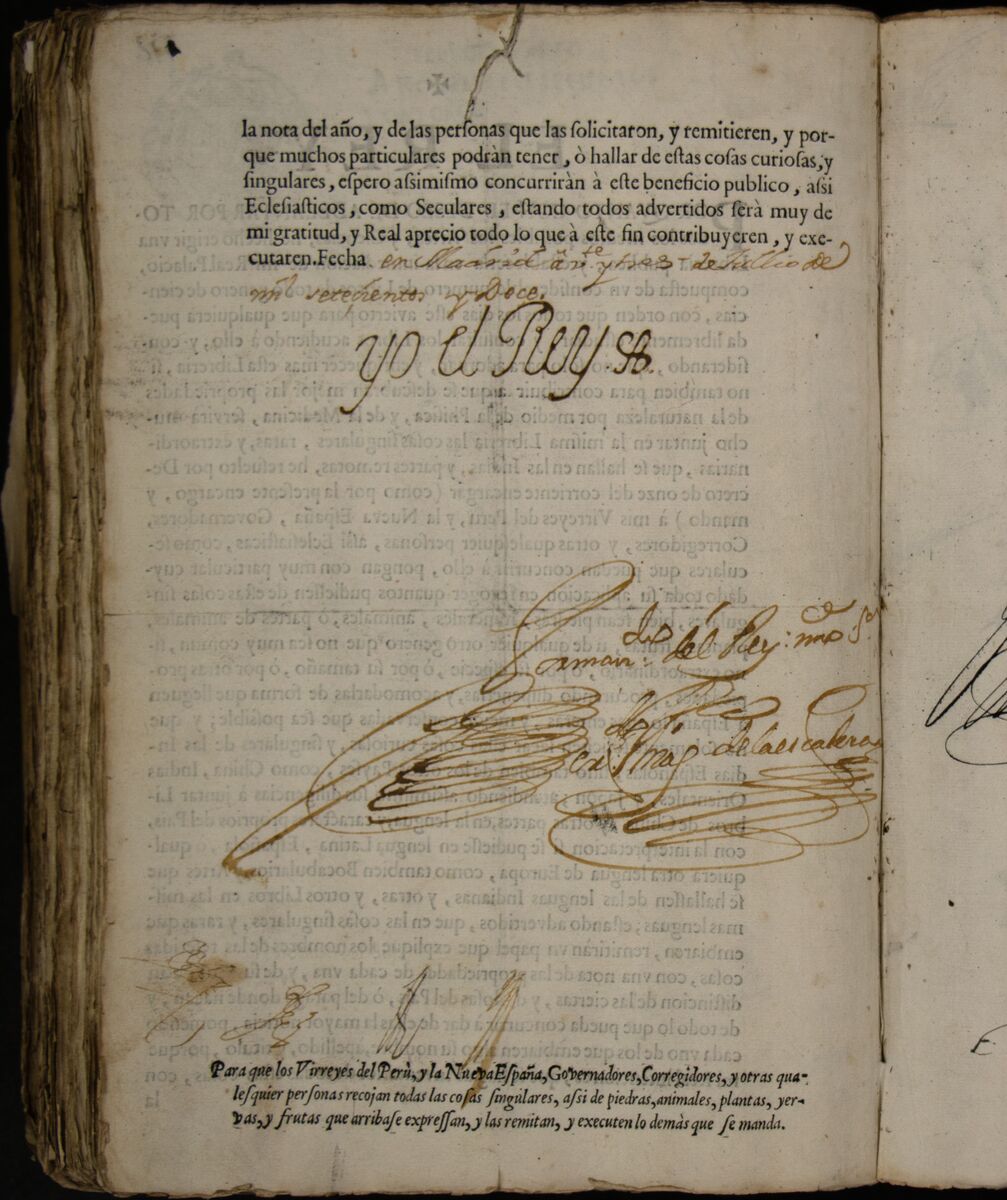 la nota del año, y de las perſonas que las ſolicitaron, y remitieren, y por-
que muchos particulares podràn tener, ò hallar de eſtas coſas curioſas, y
ſingulares, eſpero aſsimiſmo concurriràn à eſte beneficio publico, aſsi
Ecleſiaſticos, como Seculares, eſtando todos advertidos ſerà muy de
mi gratitud, y Real aprecio todo lo que à eſte fin contribuyeren, y exe-
cutaren. Fecha en Madrid à v.te y tres de Jullio de
mil setecientos y Doce.
yo el Rey
Por man.do del Rey nro S.r
de la escalera
Para que los Virreyes del Perù, y la Nueva Eſpaña, Governadores, Corregidores, y otras qua-
leſquier perſonas recojan todas las coſas ſingulares, aſsi de piedras, animales, plantas, yer-
vas, y frutas que arribaſe expreſſan, y las remitan, y executen lo demàs que ſe manda.